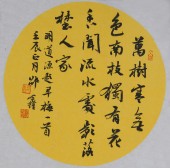 萬樹寒無
色南枝獨有花
香聞流水處影落
埜人家
明道源早梅一首
壬辰正月